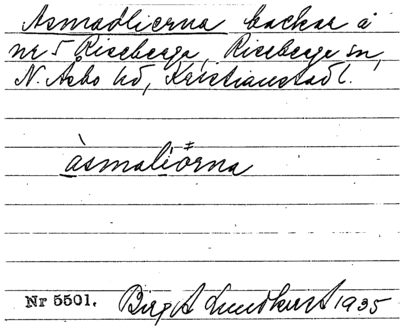 Asmadlierna backar å
nr 5 Riseberga, Riseberga sn,
N. Åsbo hd, Kristianstad l.
àsmaliörna
Nr 5501. Birgit Lundkvist 1935